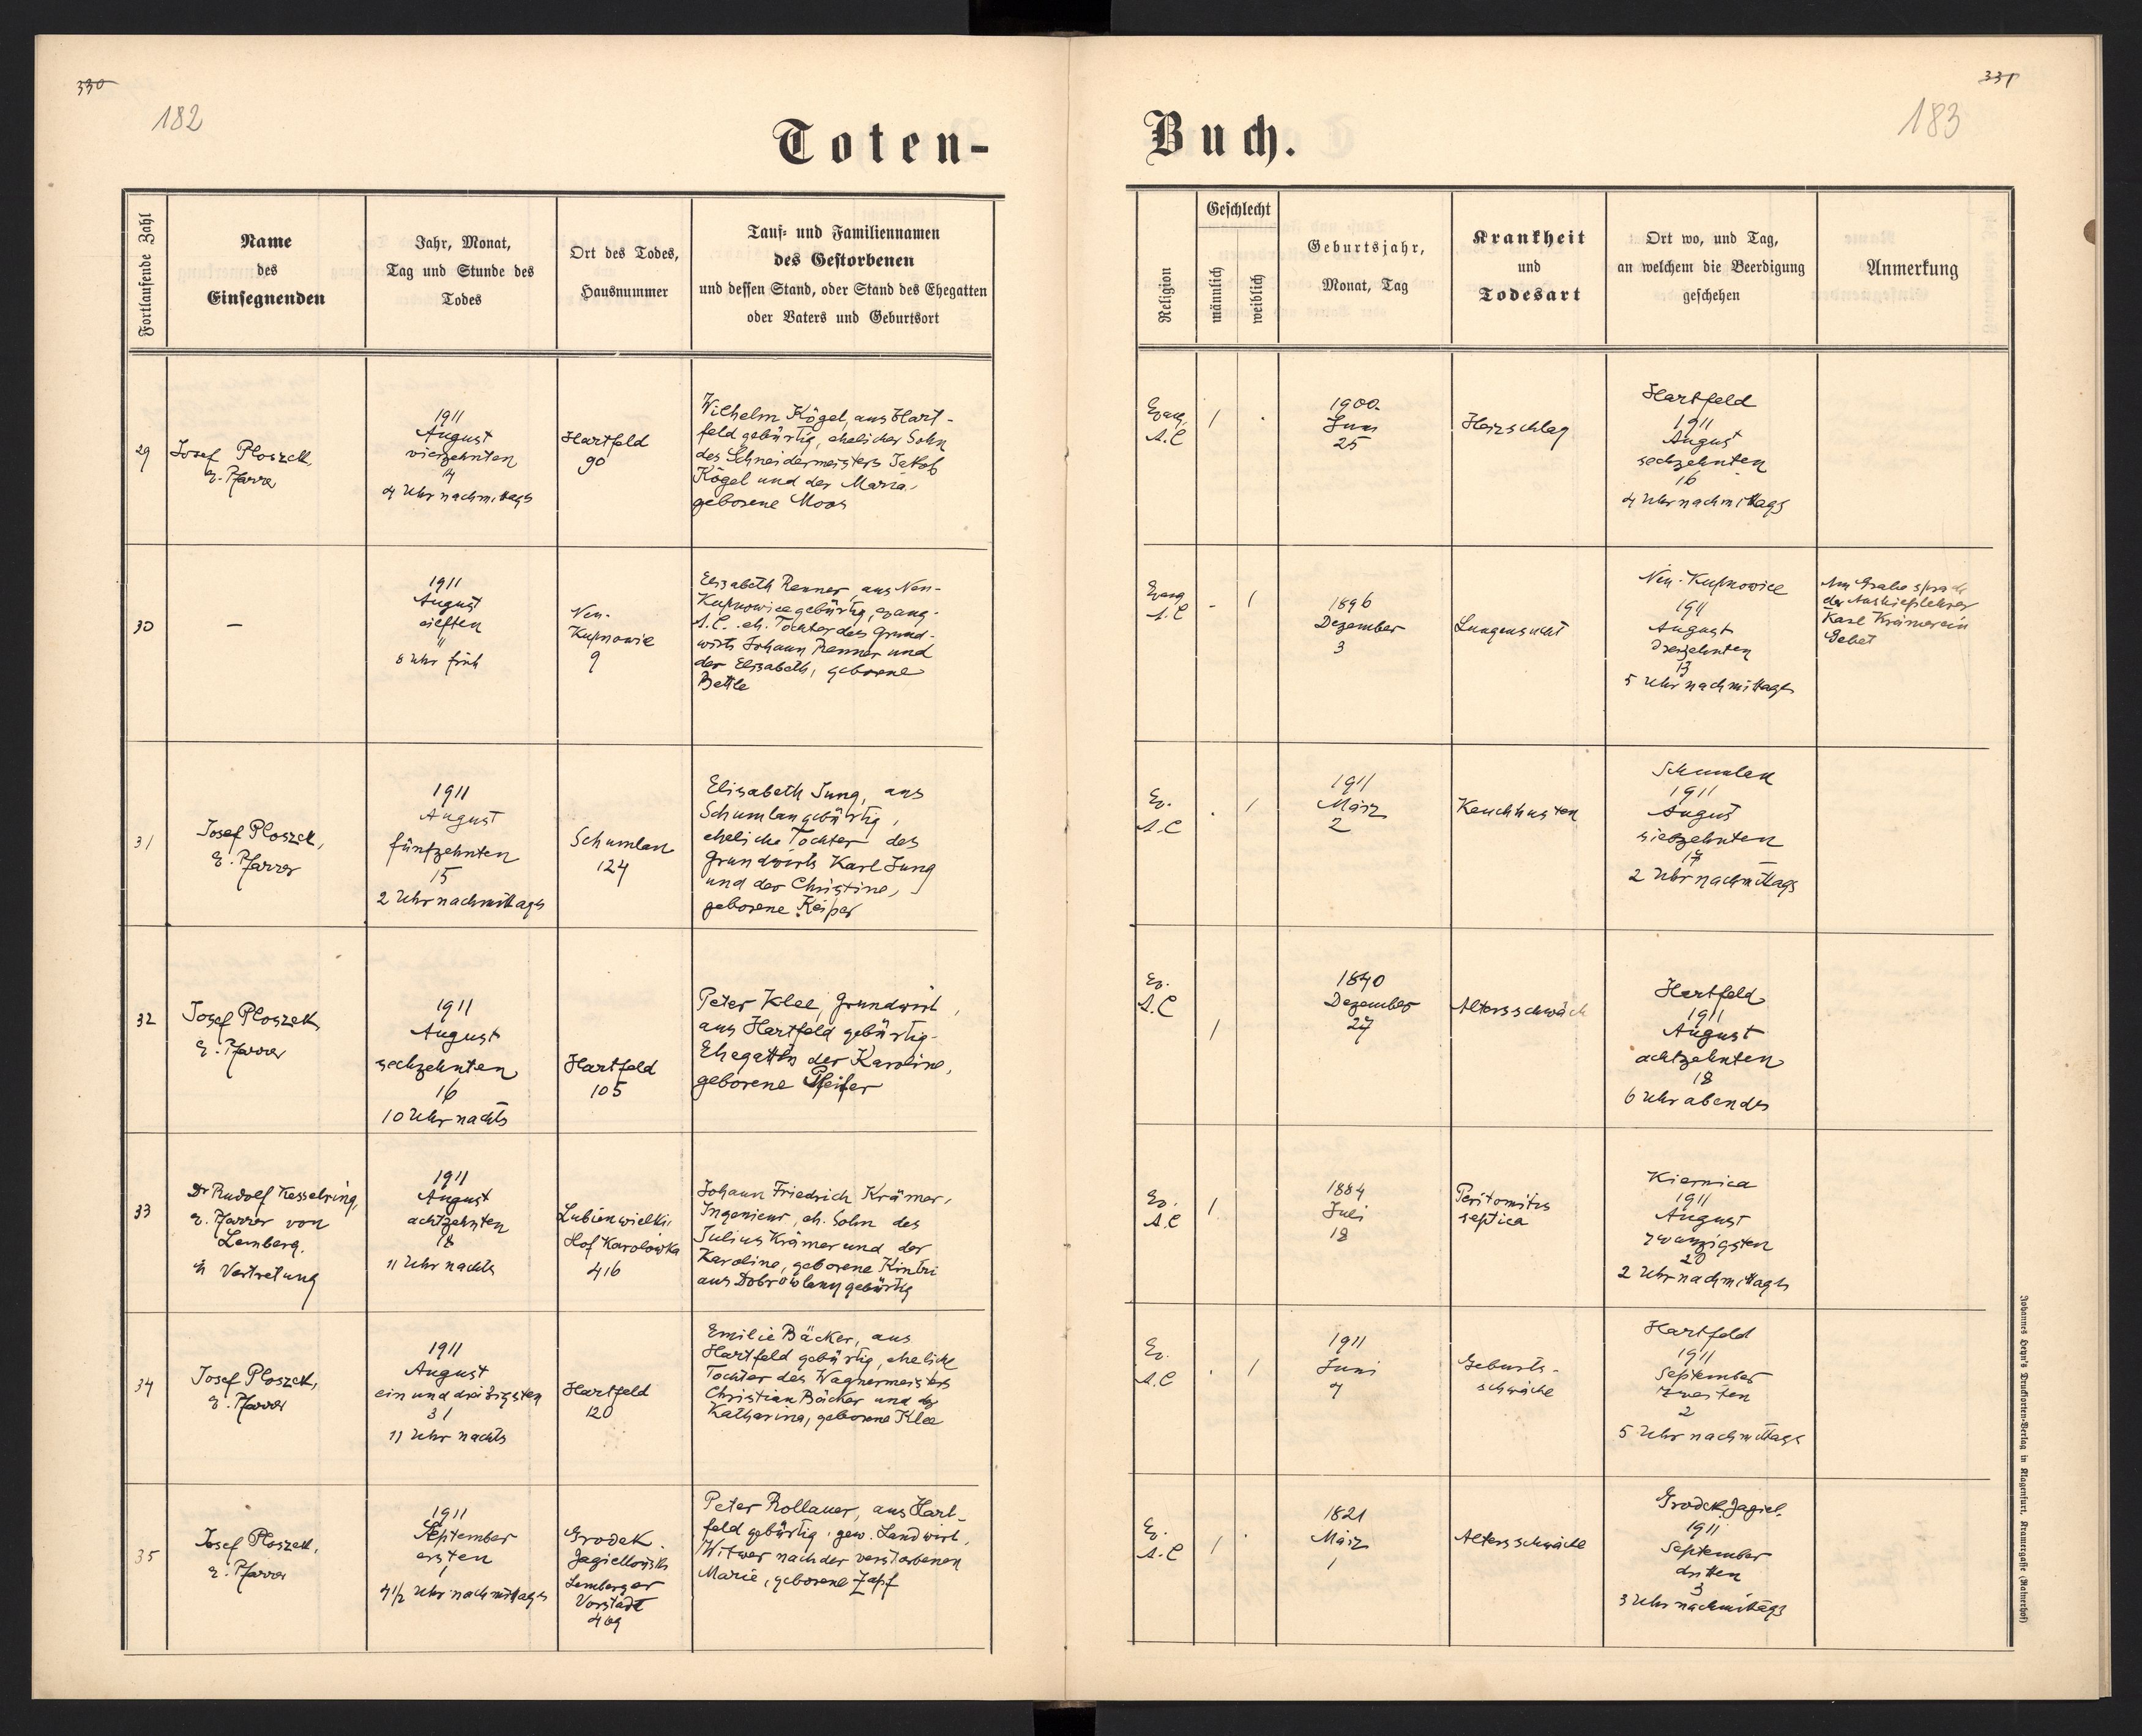 330
182
Toten-
Fortlaufende Zahl
Name
des
Einsegnenden
Jahr, Monat,
Tag und Stunde des
Todes
Ort des Todes,
Hausnummer
Tauf- und Familiennamen
des Gestorbenen
und dessen Stand, oder Stand des Ehegatten
oder Vaters und Geburtsort
29
Josef Ploszek
E. Pfarrer
1911
August
vierzehnten
14
4 Uhr nachmittags
Hartfeld
90
Wilhelm Kögel, aus Hart-
feld gebürtig, ehelicher Sohn
des Schneidermeisters Jakob
Kögel und der Maria,
geborene Moos
30
—
1911
August
eilften
11
8 Uhr früh
Neu-
Kupnowie
9
Elisabeth Renner, aus Neu-
Kupnowice gebürtig, evang.
A.C. eh. Tochter des Grund-
wirts Johann Renner und
der Elisabeth, geborene
Bettle
31
Josef Ploszek,
E. Pfarrer
1911
August
fünfzehnten
15
2 Uhr nachmittags
Schumlau
124
Elisabeth Jung, aus
Schumlau gebürtig,
eheliche Tochter des
Grundwirts Karl Jung
und der Christine,
geborene Keiper
32
Josef Ploszek
E. Pfarrer
1911
August
sechzehnten
16
10 Uhr nachts
Hartfeld
105
Peter Klee, Grundwirt,
aus Hartfeld gebürtig-
Ehegatte der Karoline,
geborene Pfeifer
33
Dr Rudolf Kesselring,
E. Pfarrer von
Lemberg,
in Vertretung
1911
August
achtzehnten
18
11 Uhr nachts
Lubienwielki,
Hof Karolówka
416
Johann Friedrich Krämer,
Ingenieur, eh. Sohn des
Julius Krämer und der
Karoline, geborene Kintzi
aus Dobrowlany gebürtig
34
Josef Ploszek,
E. Pfarrer
1911
August
ein und dreißigsten
31
11 Uhr nachts
Hartfeld
120
Emilie Bäcker, aus
Hartfeld gebürtig, eheliche
Tochter des Wagnermeisters
Christian Bäcker und der
Katharina, geborene Klee
35
Josef Ploszek,
E. Pfarrer
1911
September
ersten
1
4 1/2 Uhr nachmittags
Grodek.
Jagielloński
Lemberger
Vorstadt
409
Peter Rollauer, aus Hart-
feld gebürtig, gew. Landwirt,
Witwer nach der verstorbenen
Marie, geborene Zapf
331
183
Buch.
Religion
Geschlecht
männlich
weiblich
Geburtsjahr,
Monat, Tag
Krankheit
und
Todesart
Ort wo, und Tag,
an welchem die Beerdigung
geschehen
Anmerkung
Evang.
A.C
1
1900.
Juni
25
Herzschlag
Hartfeld
1911
August
sechzehnten
16
4 Uhr nachmittags
Evang
A.C
-
1
1896
Dezember
3
Lungensucht
Neu-Kupnowice
1911
August
dreizehnten
13
5 Uhr nachmittags
Am Grabe sprach
der Aushilfslehrer
Karl Krämer ein
Gebet
Ev.
A.C
1
1911
März
2
Keuchhusten
Schumlau
1911
August
siebzehnten
17
2 Uhr nachmittags
Ev.
A.C
1
1840
Dezember
27
Altersschwäch
Hartfeld
1911
August
achtzehnten
18
6 Uhr abends
Ev.
A.C
1
1884
Juli
18
Peritonitis
septica
Kiernica
1911
August
zwanzigsten
20
2 Uhr nachmittags
Ev.
A.C
1
1911
Juni
7
Geburts-
schwäche
Hartfeld
1911
September
zweiten
2
5 Uhr nachmittags
Ev.
A.C
1
1821
März
1
Altersschwäche
Grodek Jagiel.
1911
September
dritten
3
3 Uhr nachmittags
Johannes Heyn's Drucksorten-Verlag in Klagenfurt, Kramergasse (Rainerhof)